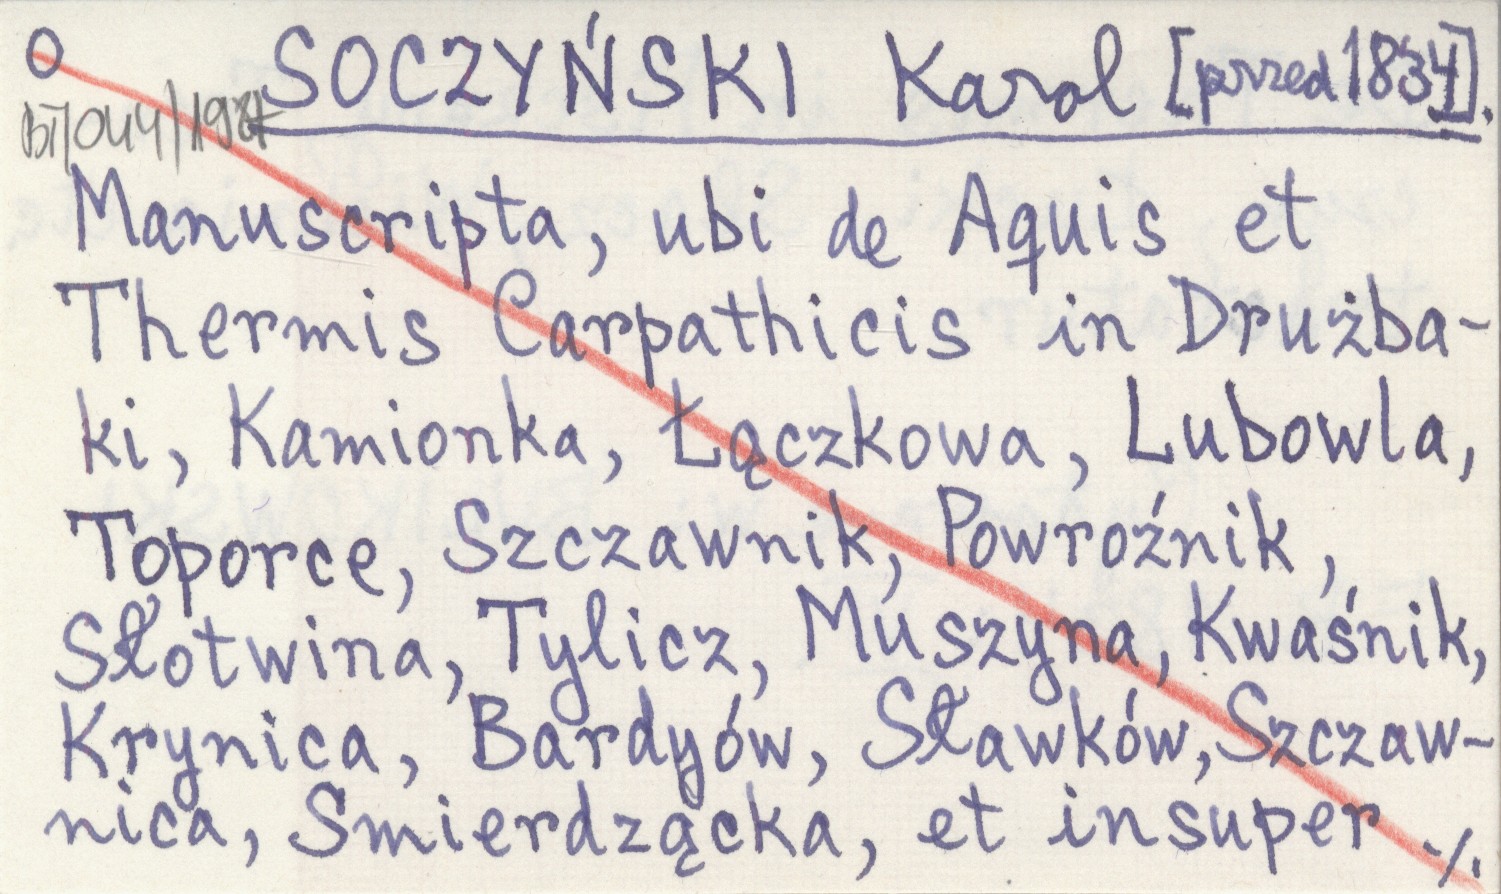 O
SOCZYŃSKI Karol [przed 1834].
BJ/044/1987
Manuscripta, ubi de Aquis et
Thermis Carpathicis in Drużba-
ki, Kamionka, Łączkowa, Lubowla,
Toporce, Szczawnik, Powroźnik,
Słotwina, Tylicz, Muszyna, Kwaśnik,
Krynica, Bardyów, Sławków, Szczaw-
nica, Smierdzącka, et insuper ./.